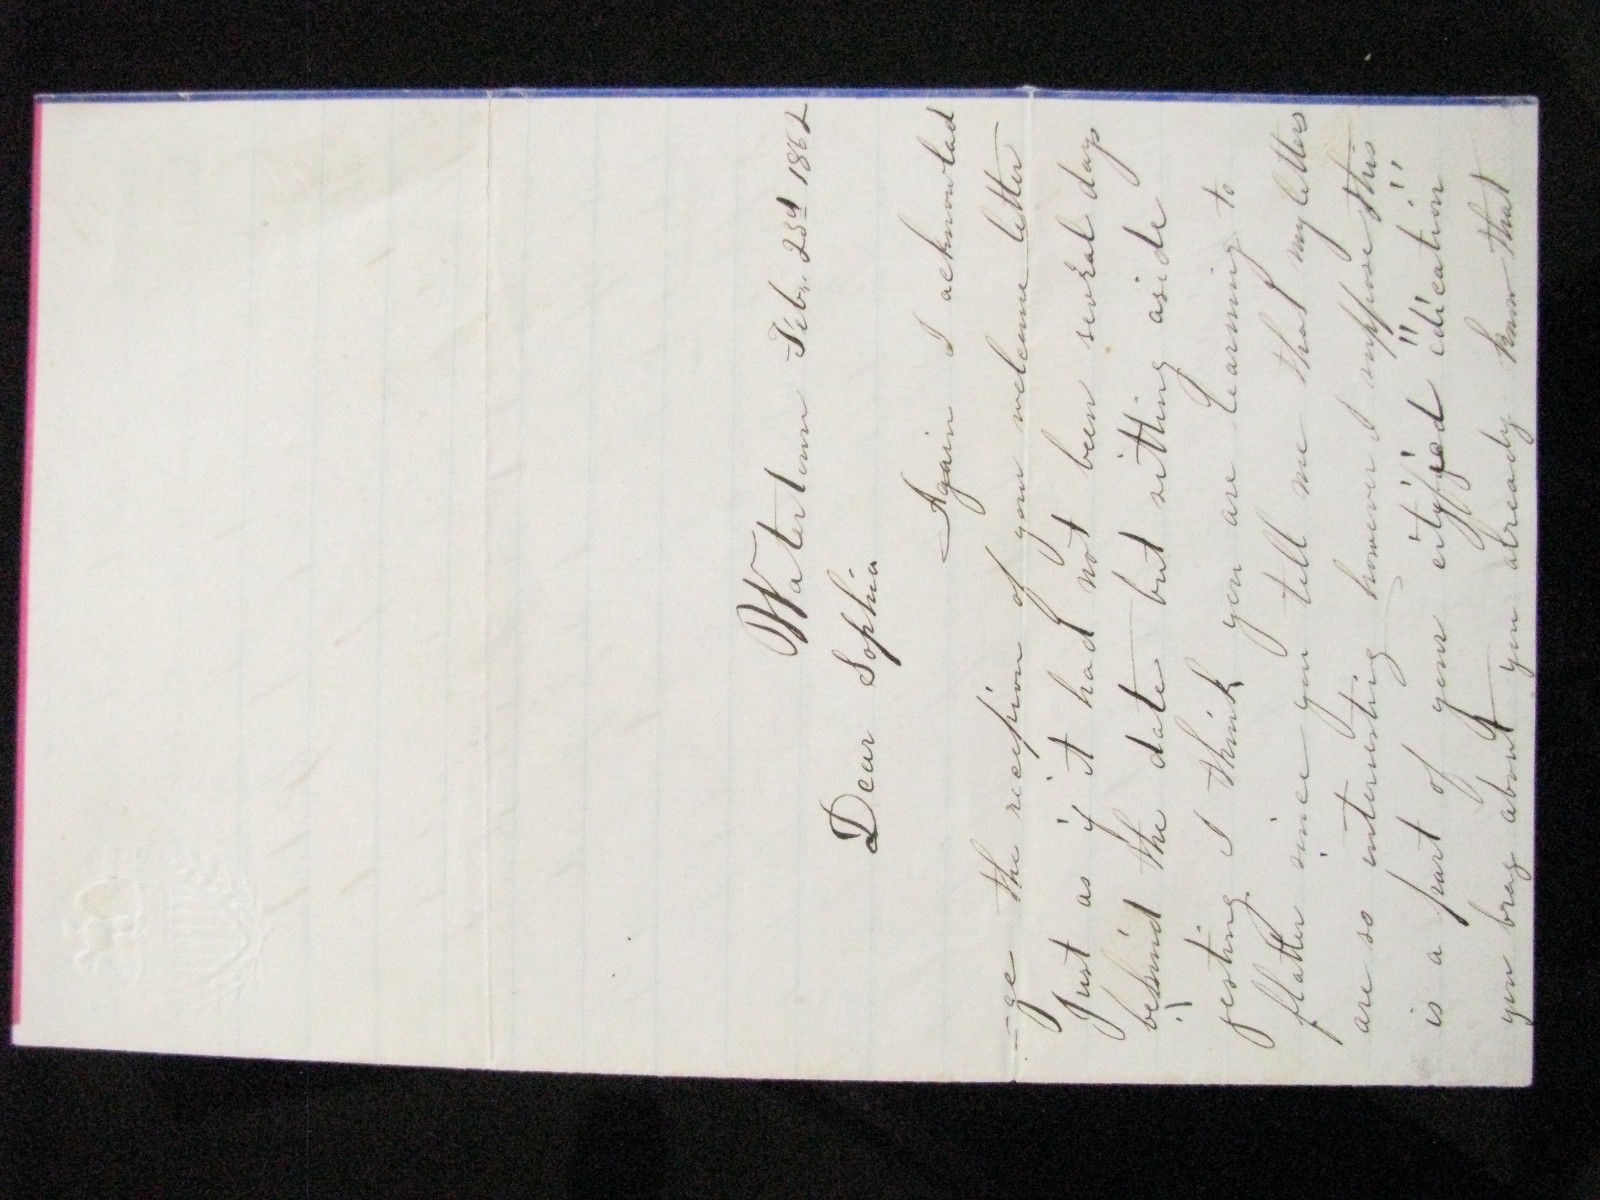 Watertown Feb. 23d 1862
Dear Sophia
Again I acknowlad
-ge the recepion of your welcome letter
Just as if it had not been several days
behind the date but sitthing aside
"jesting I think you are learning to
flatter since you tell me that my letters
are so interresting however I suppose this
is a part of your "cityfied" "edication"
you brag about you already know that